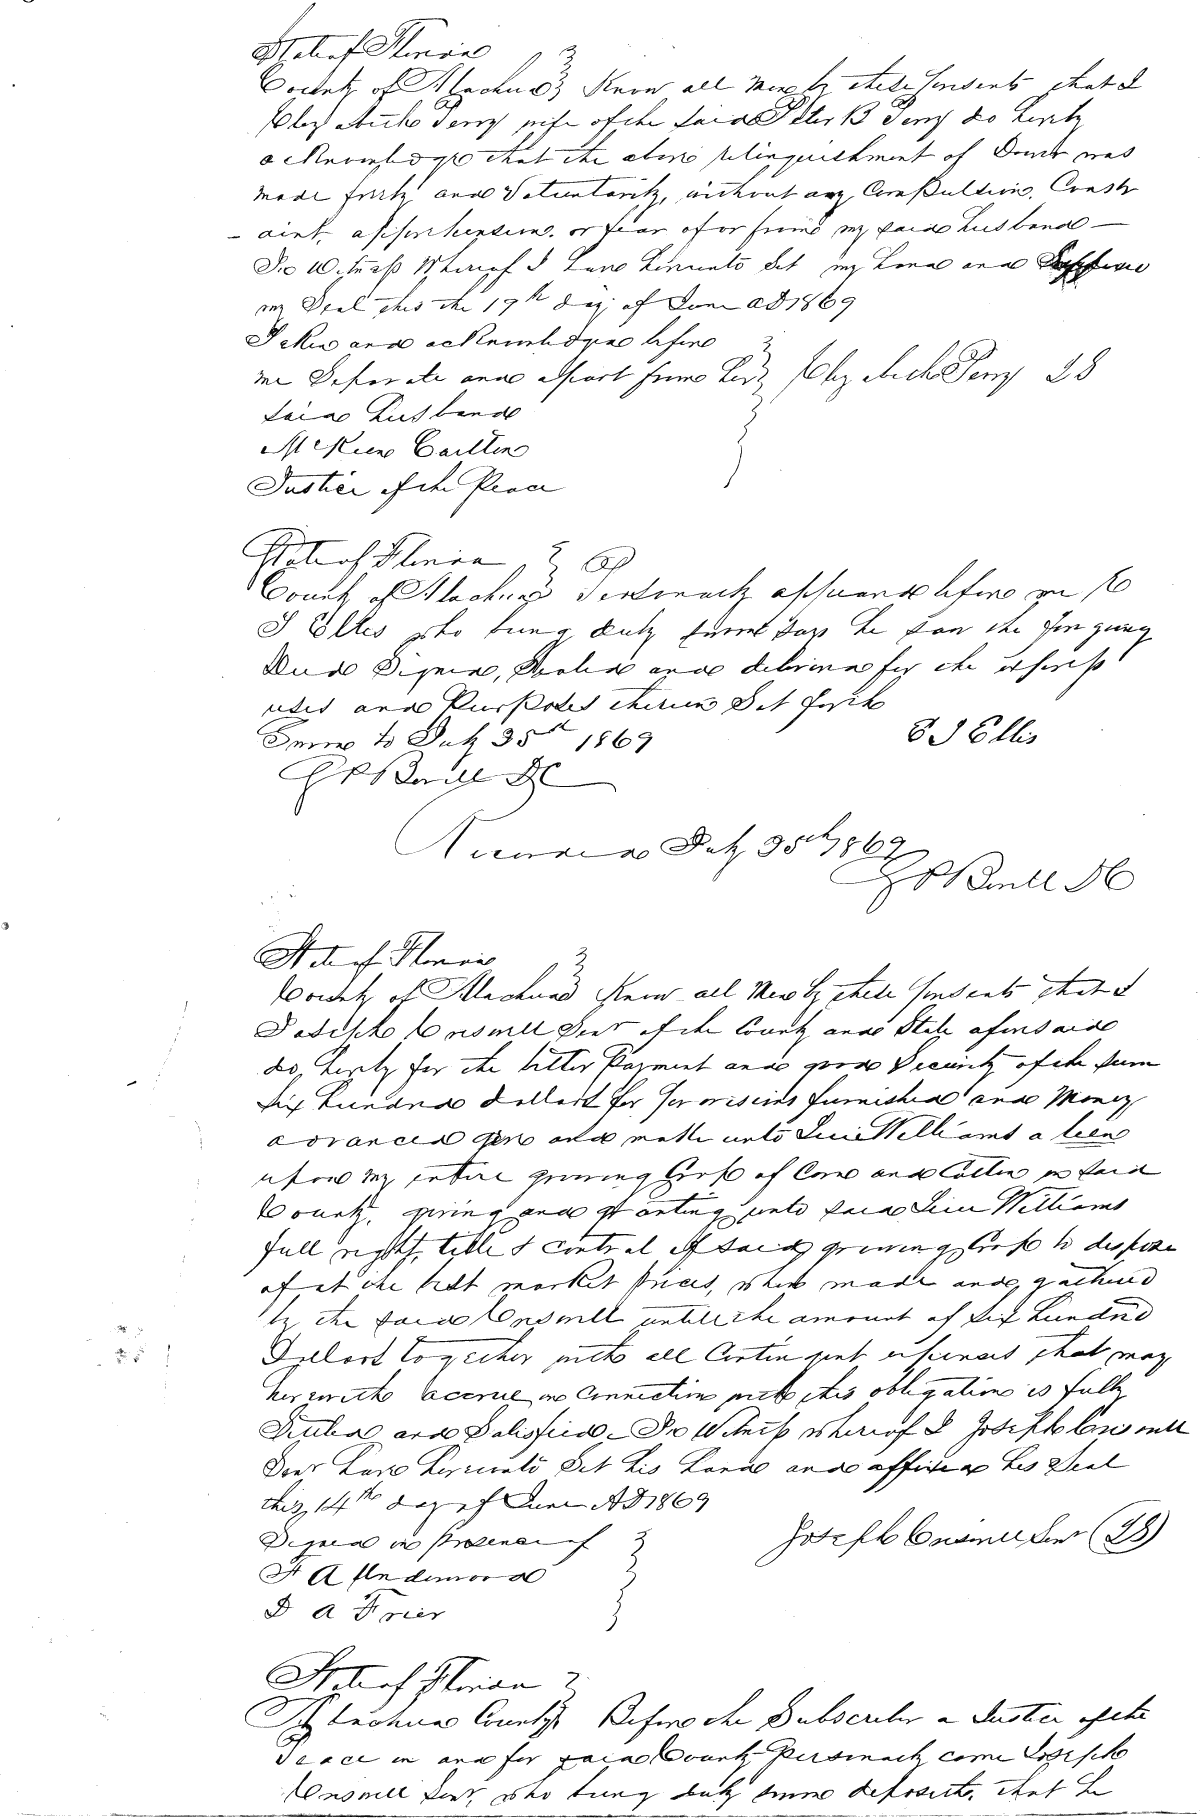 State of Florida
County of Alachua } Know all Men by these Presents that I
Elizabeth Perry wife of the said Peter B Perry do hereby
acknowledge that the above relinquishment of Dower was
made freely and Voluntarily, without any Compulsion, Constr
- aint, apprehension, or fear of or from my said husband —
In Witness Whereof I have hereunto Set my hand and
my Seal this the 19th day of June AD 1869
Taken and acknowledged before
me Separate and apart from her } Elizabeth Perry LS
said husband
Carlton
Justice of the Peace
State of Florida } SS
County of Alachua Personally appeared before me E
J Ellis who being duly sworn says he saw the foregoing
Deed Signed, Sealed and delivered for the express
uses and Purposes therein Set forth
Sworn to July 35th 1869 E J Ellis
DC
Recorded July 35th 1869
DC
State of Florida
County of Alachua } Know all Men by these Presents that I
Joseph Senr of the County and State aforesaid
do, hereby for the better Payment and good Security of the sum
six hundred dollars for Provisions furnished and Money
advanced give and make unto Williams a lien
upon my entire growing Crop of Corn and Cotton in said
County, giving and granting unto said Williams
full right, title & control of said growing Crop to dispose
of at the best market prices, when made and gathered
by the said untill the amount of six hundred
Dollars together with all Contingent expenses that may
herewith accrue in Connection with this obligation is fully
Settled and Satisfied. In Witness whereof I Joseph
Senr have hereunto Set his hand and affixed his Seal
this 14th day of June AD 1869
Signed in presence of } Joseph Senr (LS)
F A Underwood
D A Frier
State of Florida
Alachua County } Before the Subscriber a Justice of the
Peace in and for said County Personally come Joseph
Senr, who being duly sworn deposeth, that he